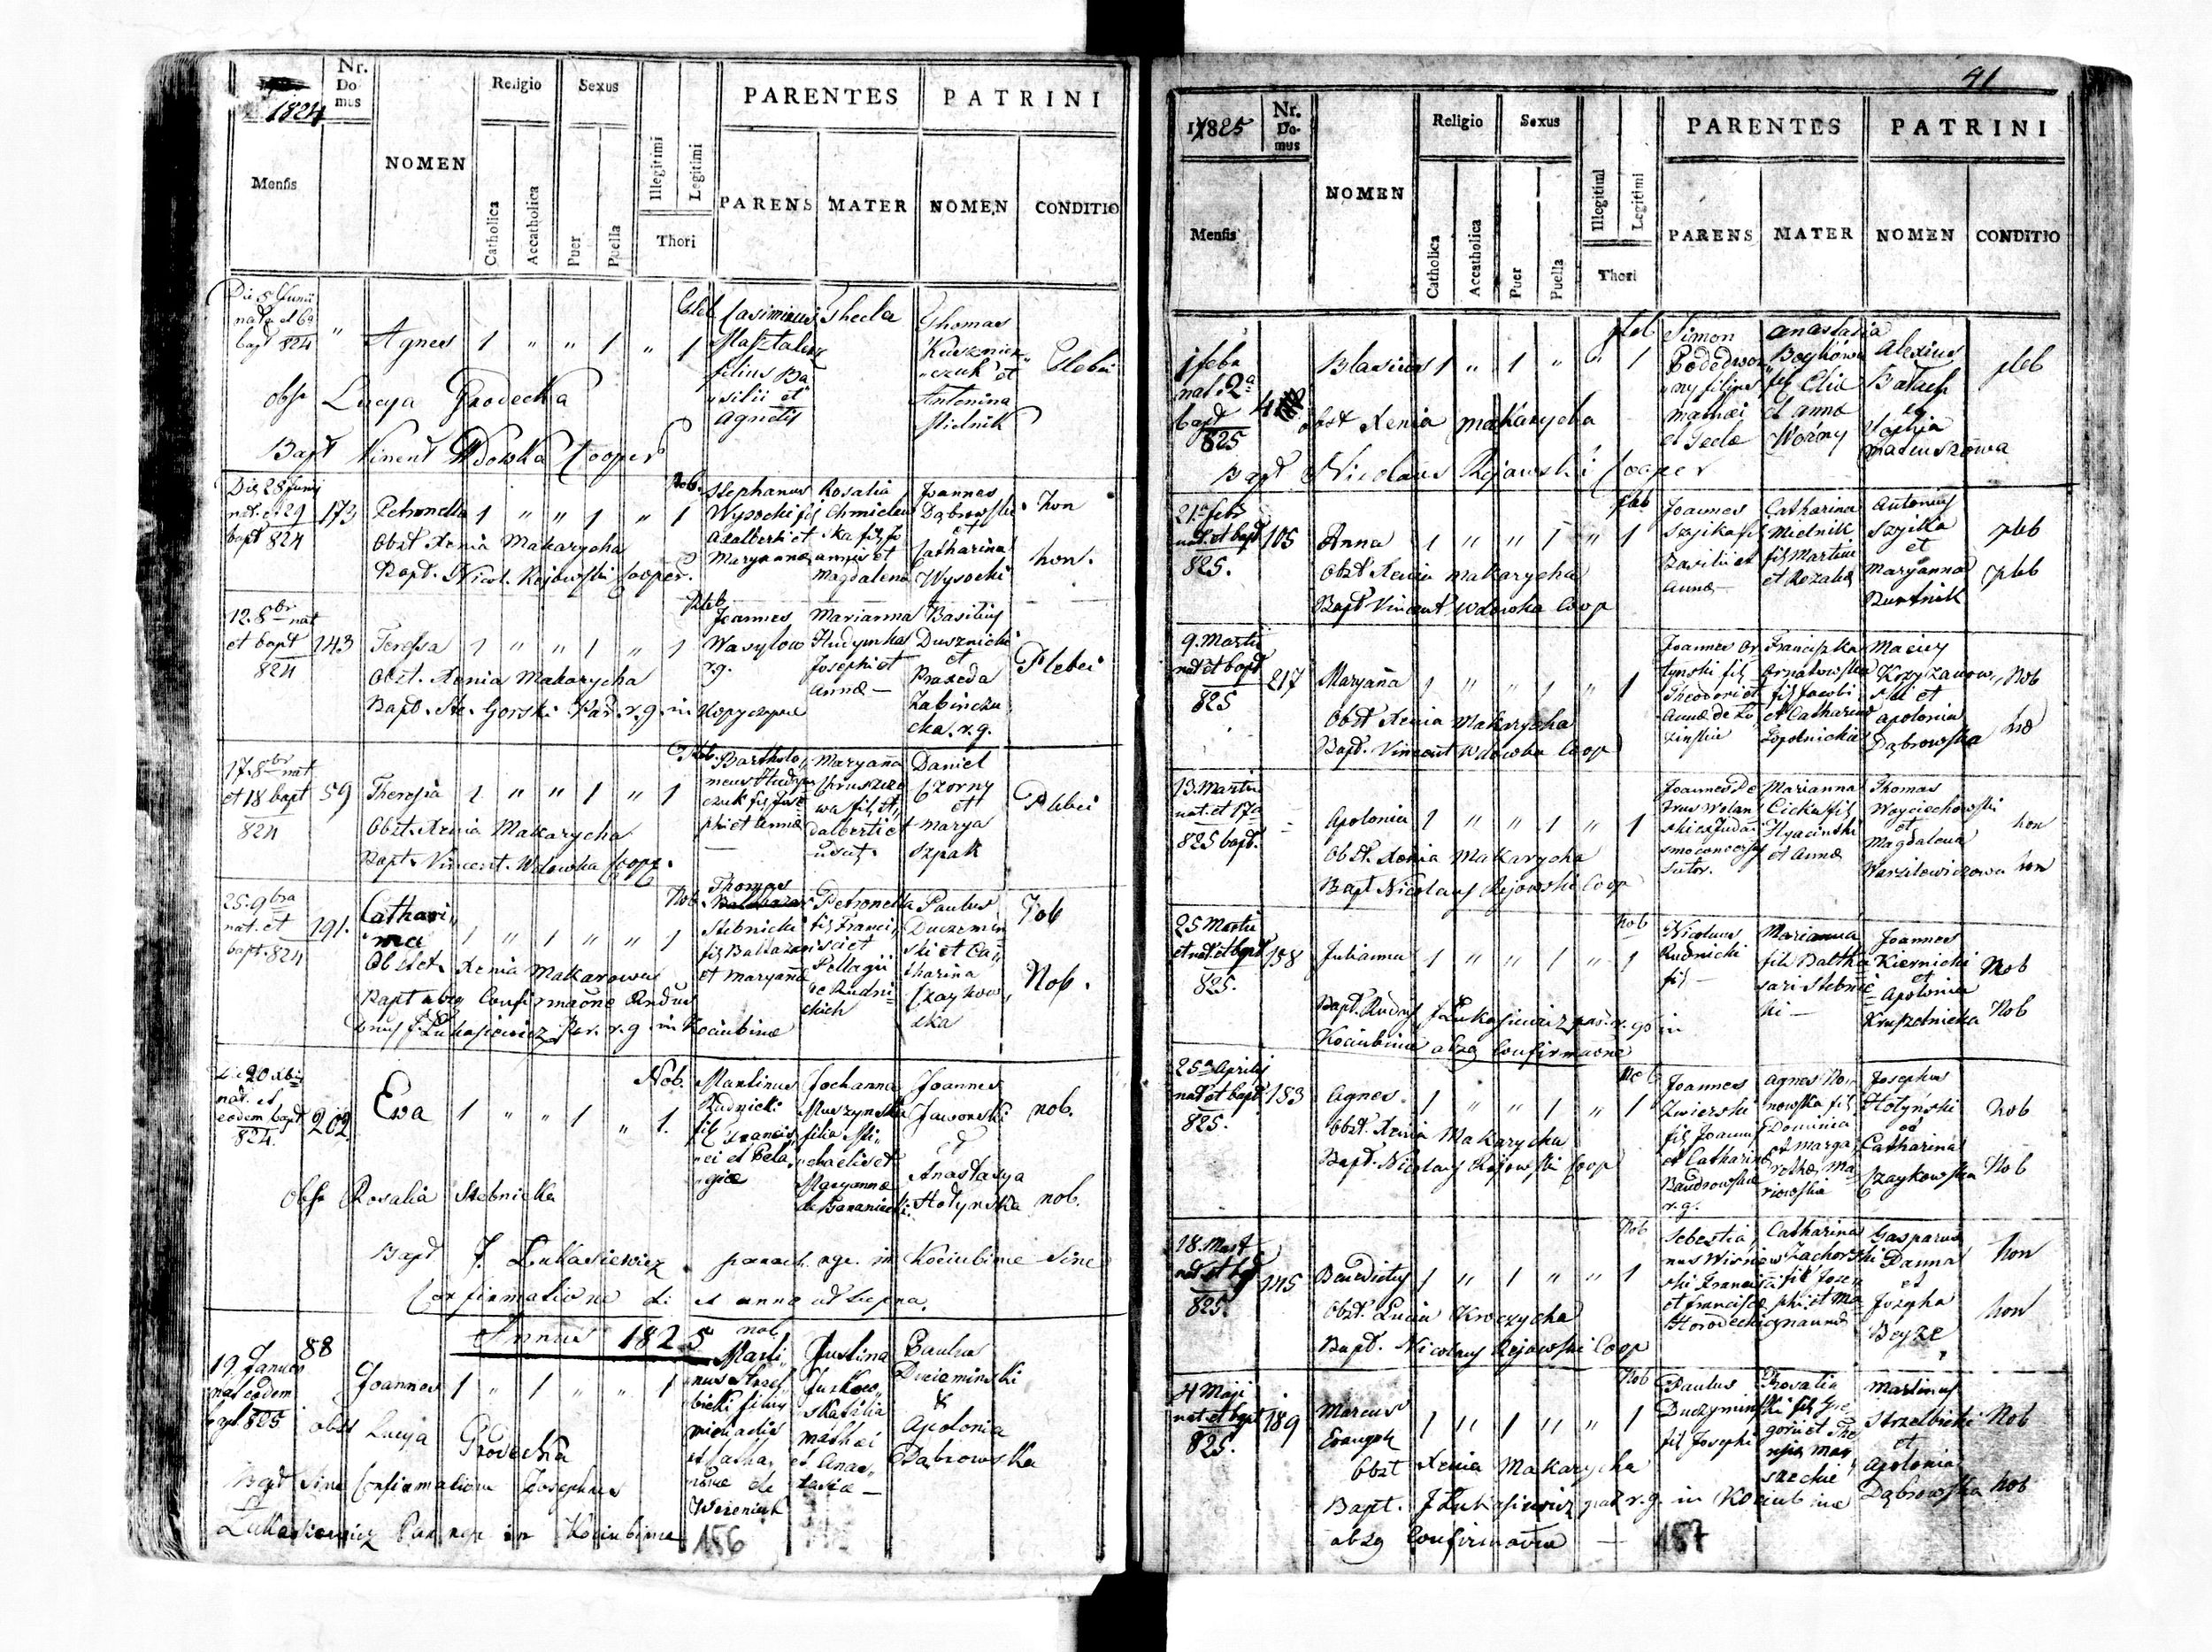 1824
Nr. Domus
NOMEN
Religio
Sexus
Illegitimi
Legitimi
PARENTES
PATRINI
Mensis
Catholica
Accatholica
Puer
Puella
Thori
PARENS
MATER
NOMEN
CONDITIO
Die 5 Junii
nata et 6a
bapt 824
" Agnes 1 " " 1 " 1
Casimirus
Masztalerz
filius Ba
silii et
Agnetis
Thecla
Thomas
Kusznier
czuk et
Antonina
Mielnik
Plebei
obst Lucya Grodecka
Bapt Vincent Wdowka Cooper
Die 28 Junij
nat. et 29
bapt 824
173 Petronella 1 " " 1 " 1
Nob.
Stephanus
Wysocki fil
Adalberti et
Maryanna
Rosalia
Chmielew
ska fil Jo
annis et
Magdalena
Joannes
Dąbrowski
et
Catharina
Wysocki
hon
hon.
Obst Xenia Makarycha
Bapt. Nicol. Kijowski Cooper.
12. 8br nat
et bapt
824
143 Teressa 1 " " 1 " 1
Pleb
Joannes
Wasylow
r.g.
Marianna
Hudymka
Josephi et
Anna
Basilius
Dusznicki
et
Praxeda
Zabinczu
cka. r.g.
Plebei
Obst. Xenia Makarycha
Bapt. St. Gorski Par. r.g. in Kopyczynce
17. 8br nat
et 18 bapt
824
59 Theresia 1 " " 1 " 1
Bartholo
meus
czuk fil Jose
phi et Anna
Maryana
wa fil A
dalberti et
Daniel
Czorny
et
Marya
Szpak
Plebei
Obst. Xenia Makarycha
Bapt. Vincent. Wdowka Coop.
25. 9bra
nat. et
bapt. 824
191. Cathari
na 1 " 1 " " 1
Nob.
Thomas
Stebnicki
fil Baltazari
et Maryana
Petronella
fil Franci
sci et
Pellagii
de Rudni
ckich
Paulus
Duczemin
ski et Ca
tharina
Czaykow
ska
Nob
Nob.
Obstet. Xenia Makarowa
Bapt absq Confirmaone Rndus
Dnus J. Lukasiewicz Par. r.g. in Kociubince
Die 20 Xbris
nat. et
eodem bapt
824.
202 Ewa 1 " " 1 " 1.
Nob.
Martinus
Rudnicki
fil Francis
ci et Pela
giae
Joehanna
Muszynska
filia Mi
chaelis et
Maryanna
Joannes
Jaworski
et
Anastasya
Hołynska
nob.
nob.
Obst Rosalia Stebnicka
Bapt J. Lukasiewicz paroch. rgr. in Kociubince Sine
Confirmatione di et anno ut supra.
Annus 1825
19. Januar
nat eodem
bapt 825
88 Joannes 1 " 1 " " 1
nob
Marti
nus Strzel
bicki filius
Michaelis
et Catha
rinae de
Wereniak
Justina
Jurkow
ska filia
Mathaei
et Anas
tasiae
Paulus
Duczeminski
et
Apolonia
Dąbrowska
obst Lucya Grodecka
Bapt Sine Confirmatione Josephus
Lukasiewicz Par rgr in Kociubince
156
41
1825
Nr. Domus
NOMEN
Religio
Sexus
Illegitimi
Legitimi
PARENTES
PATRINI
Mensis
Catholica
Accatholica
Puer
Puella
Thori
PARENS
MATER
NOMEN
CONDITIO
1 feba
nat. 2a
bapt
825
Blasius 1 " 1 " " 1
pleb
Simon
Podedwor
ny filius
Mathaei
et Teclae
Anastasia
Boykowa
fil Eliae
et Anna
Worny
Alexius
Baluch
et
Sophia
Mateuszowa
pleb
obst Xenia Makarycha
Bapt Nicolaus Kijowski Cooper
21a febr
nat et bapt
825.
105 Anna 1 " " 1 " 1
pleb
Joannes
Szyika fil
Basilii et
Anna
Catharina
Mielnik
fil Martini
et Rozalia
Antonius
Szyika
et
Maryanna
Burtnik
pleb
pleb
Obst Xenia Makarycha
Bapt Vincent Wdowka Coop
9. Martii
nat et bapt
825
217 Maryana 1 " " 1 " 1
Joannes Or
tynski fil
Theodori et
Anna de Lo
zinskie
Franciszka
Ornatowska
fil Jacobi
et Catharina
Łopatnickie
Maciey
Krzyzanow
ski et
Apolonia
Dąbrowska
Nob
Obst Xenia Makarycha
Bapt. Vincent Wdowka Coop
13. Martii
nat. et 17a
825 bapt.
Apolonia 1 " " 1 " 1
Joannes Pe
trus Wolan
ski ex Judai
smo conversus
Sutor.
Marianna
Cicka fil
Hyacinthi
et Anna
Thomas
Woyciechowski
et
Magdalena
Wasilewiczowa
hon
hon
Obst. Xenia Makarycha
Bapt Nicolaus Kijowski Coop
25 Martii
et nat et bapt
825.
158 Julianna 1 " " 1 " 1
Nob
Nicolaus
Rudnicki
fil
Marianna
fil Baltha
sari Stebnic
ki
Joannes
Kiernicki
et
Apolonia
Kruszelnicka
Nob
Nob
Bapt. Rndus J Lukasiewicz par. r. g. in
Kociubince absq Confirmaone
25a Aprilis
nat et bapt
825.
153 Agnes. 1 " " 1 " 1
Nob
Joannes
Zwierski
fil Joannis
et Catharina
Bandrowskie
r.g.
Agnes No
nowska fil
Dominici
et Marga
retha, Ma
riowskie
Josephus
Hołyński
et
Catharina
Czaykowska
Nob
Nob
Obst. Xenia Makarycha
Bapt. Nicolaus Kijowski Coop
18. Mart
nat et bapt
825.
145 Benedictus 1 " 1 " " 1
Nob
Sebestia
nus Wisniew
ski Francisci
et Francisca
Horodeckie
Catharina
Zachorski
fil Jose
phi et Ma
Gasparus
Panna
et
Jozepha
Beyze
hon
hon
Obst. Lucia
Bapt. Nicolaus Kijowski Coop
4 Maji
nat. et bapt
825.
189 Marcus
Evangeli 1 " 1 " " 1
Nob
Paulus
Duczymin
ski
fil Josephi
Rosalia
fil Gre
gorii et The
resia
Martinus
Strzelbicki
et
Apolonia
Dąbrowska
Nob
Nob
Obst Xenia Makarycha
Bapt. J Lukasiewicz par r.g. in Kociubince
absq Confirmaone
157